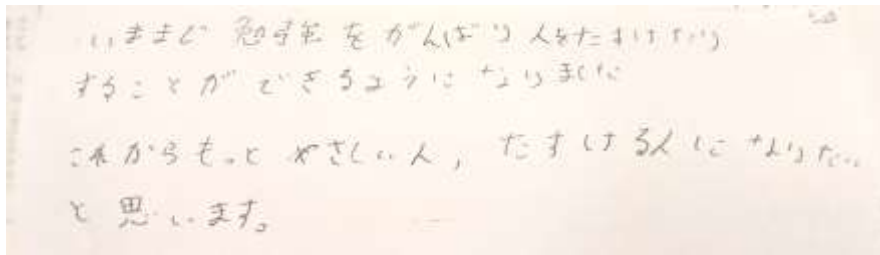 いままで 勉強を がんばり 人をたすけたり
することができるようになりました
これからもっと やさしい人, たすける人になりたい
と思います。